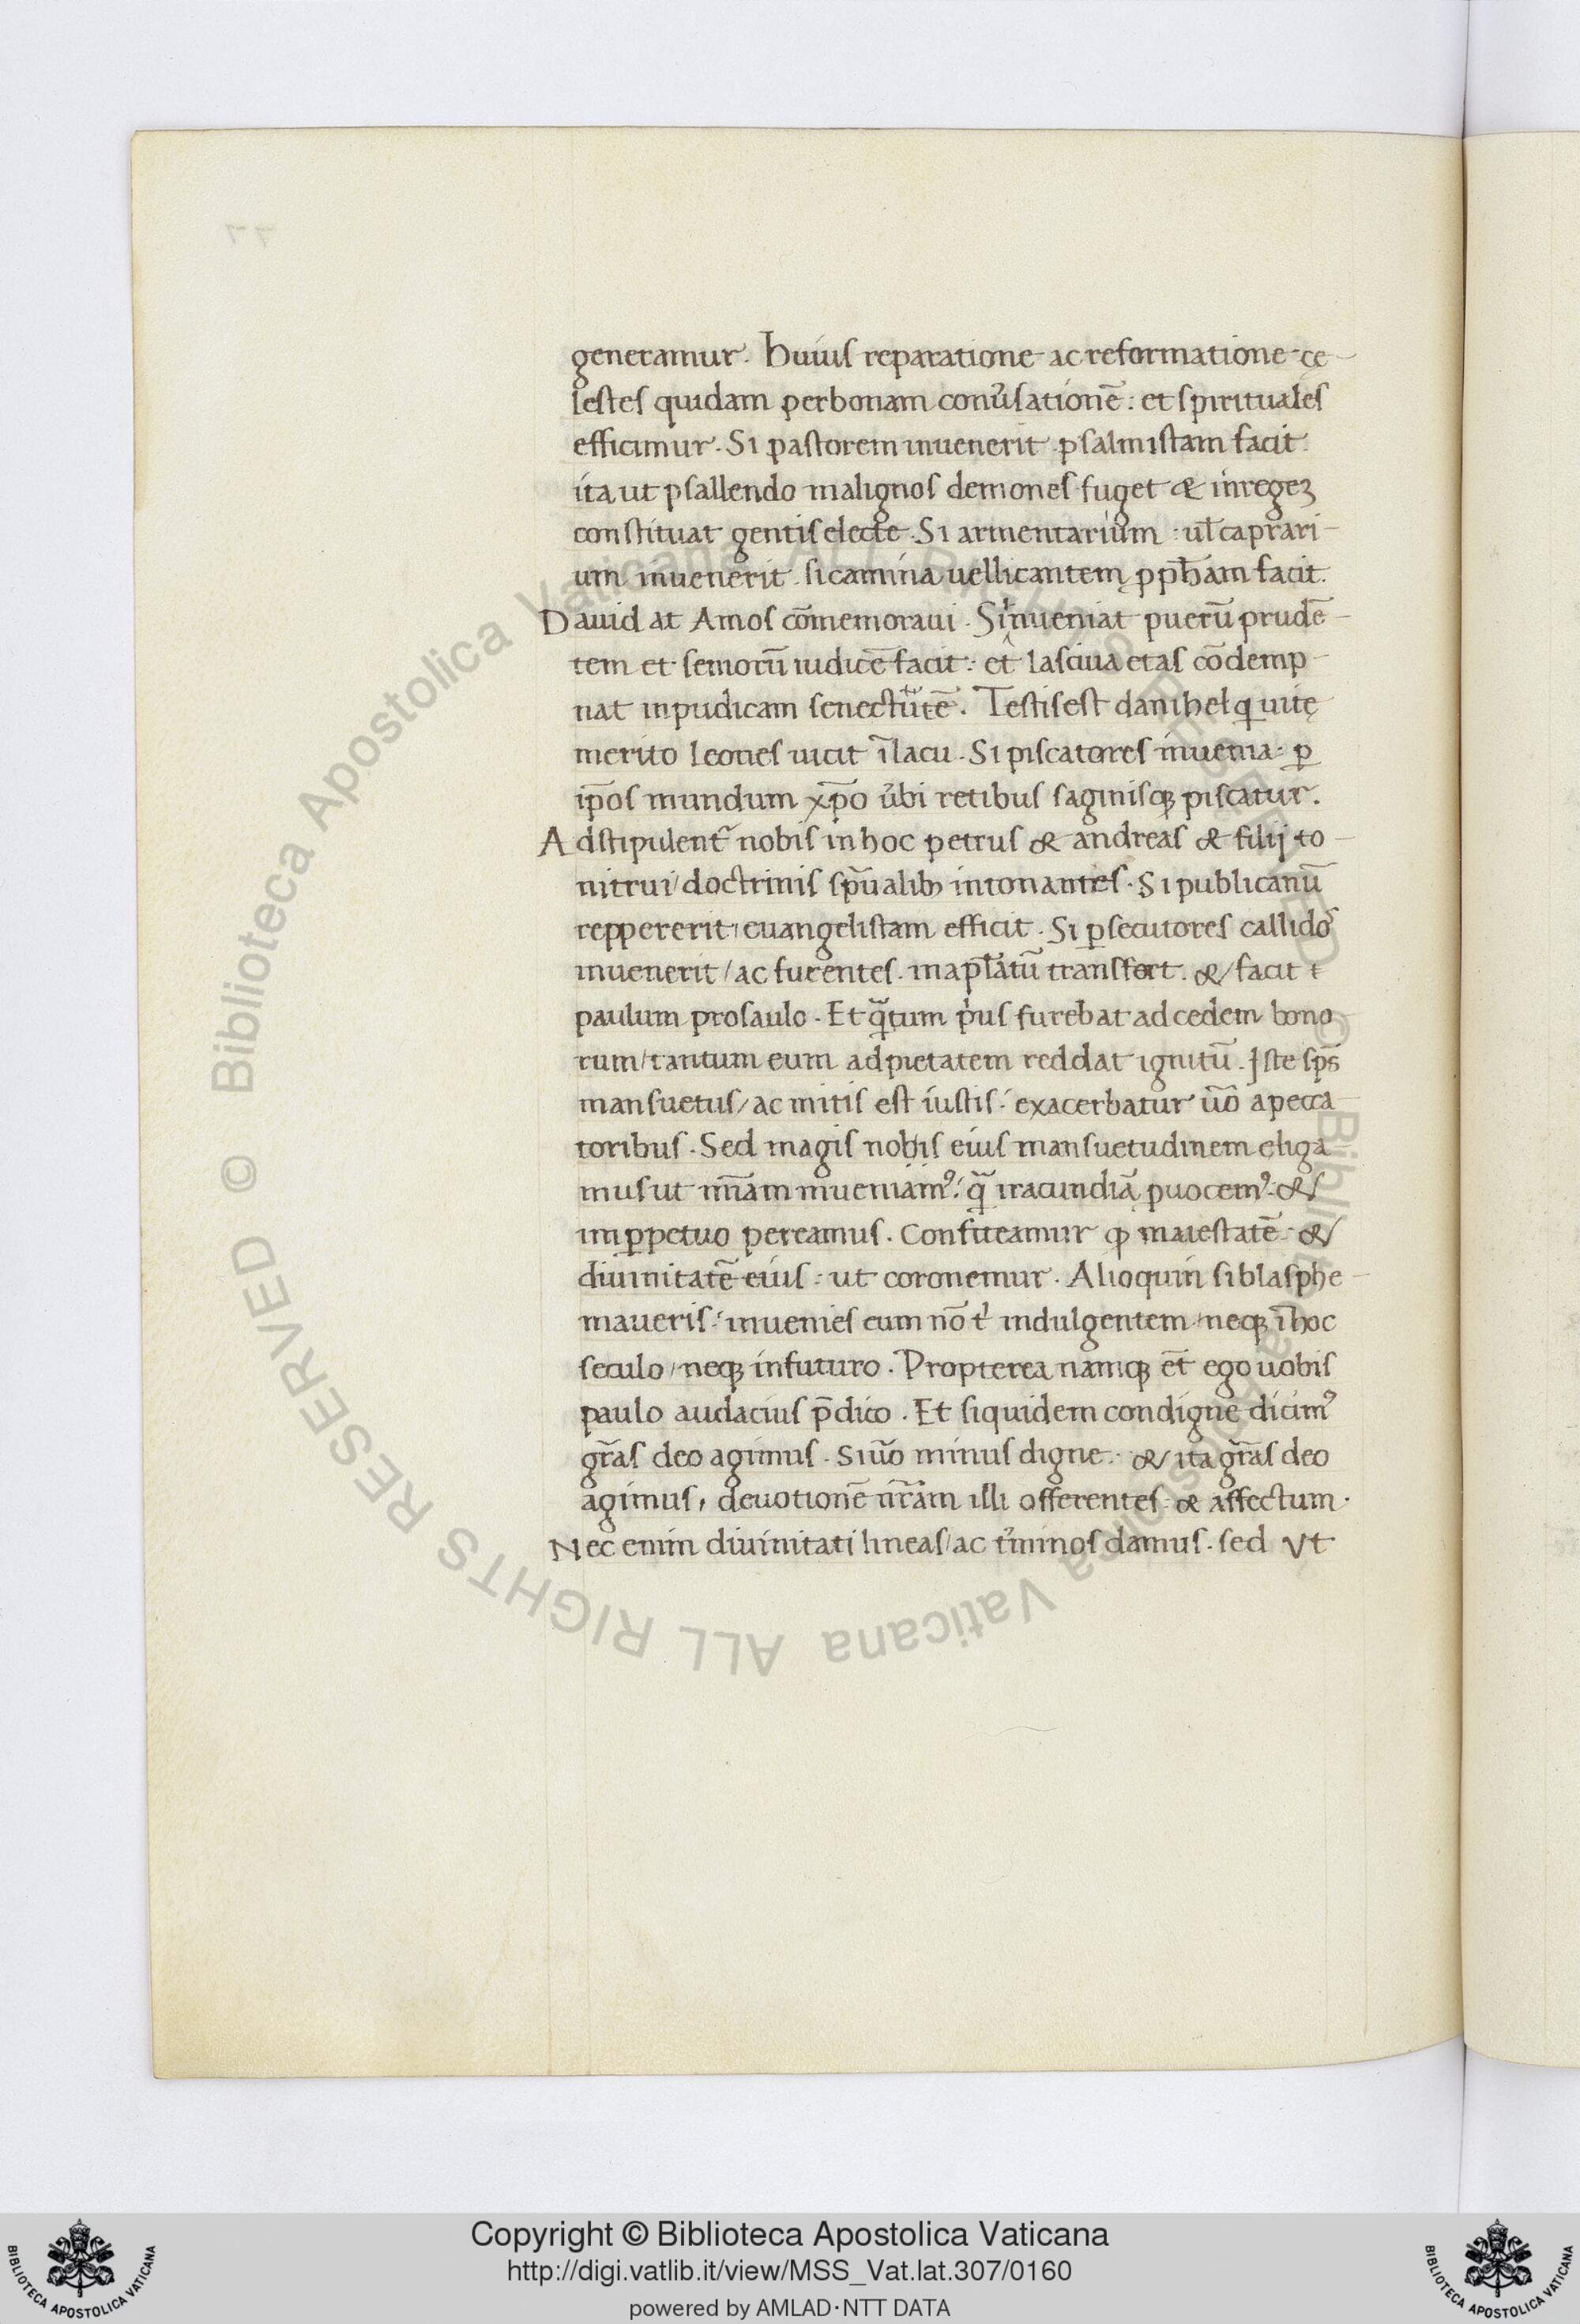 generamur. Huius reparatione ac reformatione cę
lestes quidam perbonam conu̓sationē: et spirituales
efficimur. Si pastorem inuenerit psalmistam facit.
ita ut psallendo malignos demones fuget & inregeꝫ
constituat gentis electe. Si armentarium: ul̄ caprari
um inuenerit sicamina uellicantem ꝓph̄am facit.
Dauid at Amos cōmemoraui. Si inueniat puerū prudē
tem et semorū iudicē facit: et lasciua etas cōdemp
nat inpudicam senectutē. Testis est danihel qui uitę
merito leones uicit ī lacu. Si piscatores inuenia: ꝑ
ip̄os mundum xp̄o u̓bi retibus saginisqꝫ piscatur.
Adstipulent᷑ nobis in hoc petrus & andreas & filij to
nitrui/ doctrinis sp̄ualibꝫ intonantes. Si publicanū
reppererit/ euangelistam efficit. Si ꝑsecutores callidos
inuenerit/ ac furentes. in apl̄atū transfert. & facit
paulum prosaulo. Et qᷓtum pͥus furebat ad cedem bono
rum/ tantum eum ad pietatem reddat ignitū. Iste sp̄s
mansuetus/ ac mitis est iustis: exacerbatur u̅o apecca
toribus. Sed magis nobis eius mansuetudinem eliga
mus ut mīam inueniamꝰ: qᷓ iracundiā ꝓuocemꝰ. &
imꝑpetuo pereamus. Confiteamur ꝙ maiestatē &
diuinitatē eius: ut coronemur. Alioquin si blasphe
maueris: inuenies eum nō tͥ indulgentem/ neqꝫ ī hoc
seculo/ neqꝫ in futuro. Propterea namqꝫ et̄ ego uobis
paulo audacius p̄dico. Et siquidem condigne dicimꝰ
gr̄as deo agimus. Si u̅o minus digne: & ita gr̄as deo
agimus, deuotionē nr̄am illi offerentes & affectum.
Nec enim diuinitati lineas/ ac t̓minos damus. sed Vt
Copyright © Biblioteca Apostolica Vaticana
http://digi.vatlib.it/view/MSS_Vat.lat.307/0160
powered by AMLAD·NTT DATA
BIBLIOTECA APOSTOLICA VATICANA
BIBLIOTECA APOSTOLICA VATICANA
© Biblioteca Apostolica Vaticana ALL RIGHTS RESERVED
© Biblioteca Apostolica Vaticana ALL RIGHTS RESERVED